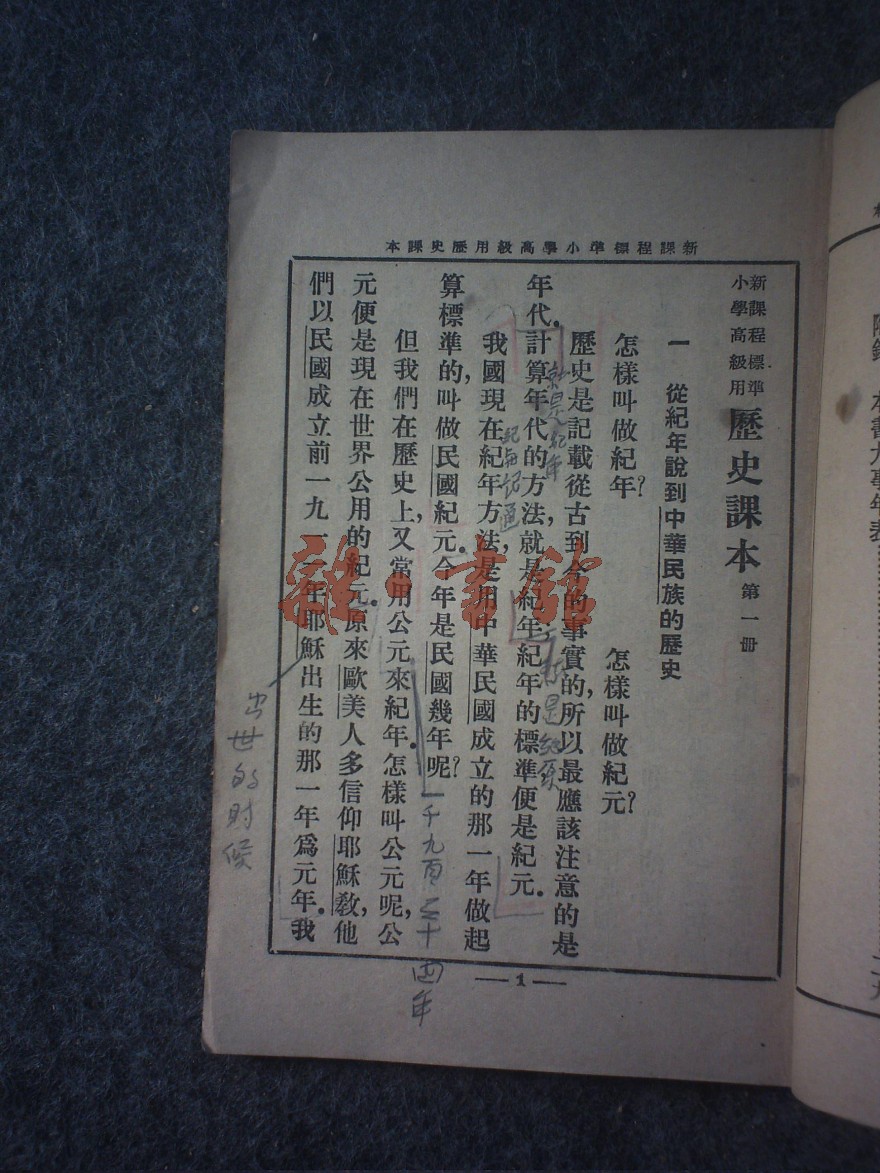 新課程標準小學高級用歷史課本
新課程標準
小學高級用
歷史課本 第一冊
一 從紀年說到中華民族的歷史
怎樣叫做紀年? 怎樣叫做紀元?
歷史是記載從古到今的事實的,所以最應該注意的是
年代.計算年代的方法,就是紀年;紀年的標準便是紀元.
我國現在紀年方法,是用中華民國成立的那一年做起
算標準的,叫做民國紀元.今年是民國幾年呢?
一千九百三十四年
但我們在歷史上,又常用公元來紀年.怎樣叫公元呢,公
元便是現在世界公用的紀元.原來歐美人多信仰耶穌教,他
們以民國成立前一九一一年耶穌出生的那一年爲元年.我
出世的財候
— 1 —
雜·書館
附錄 本書大事年表